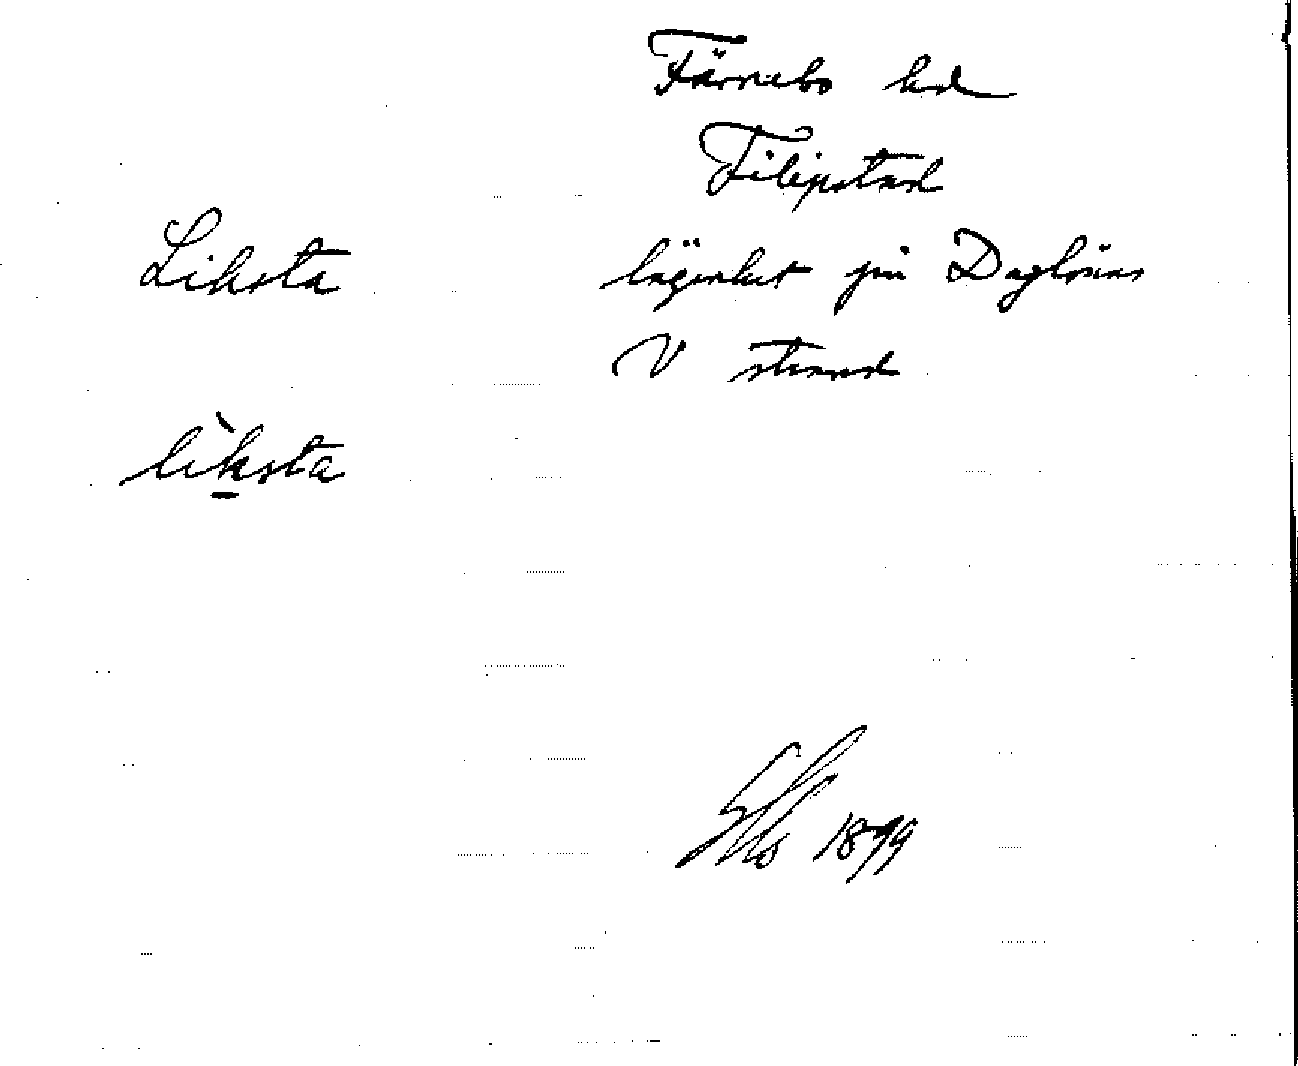 Färnebo hd
Filipstad
Liksta lägenhet på Daglösens
V strand
lìksta
1899